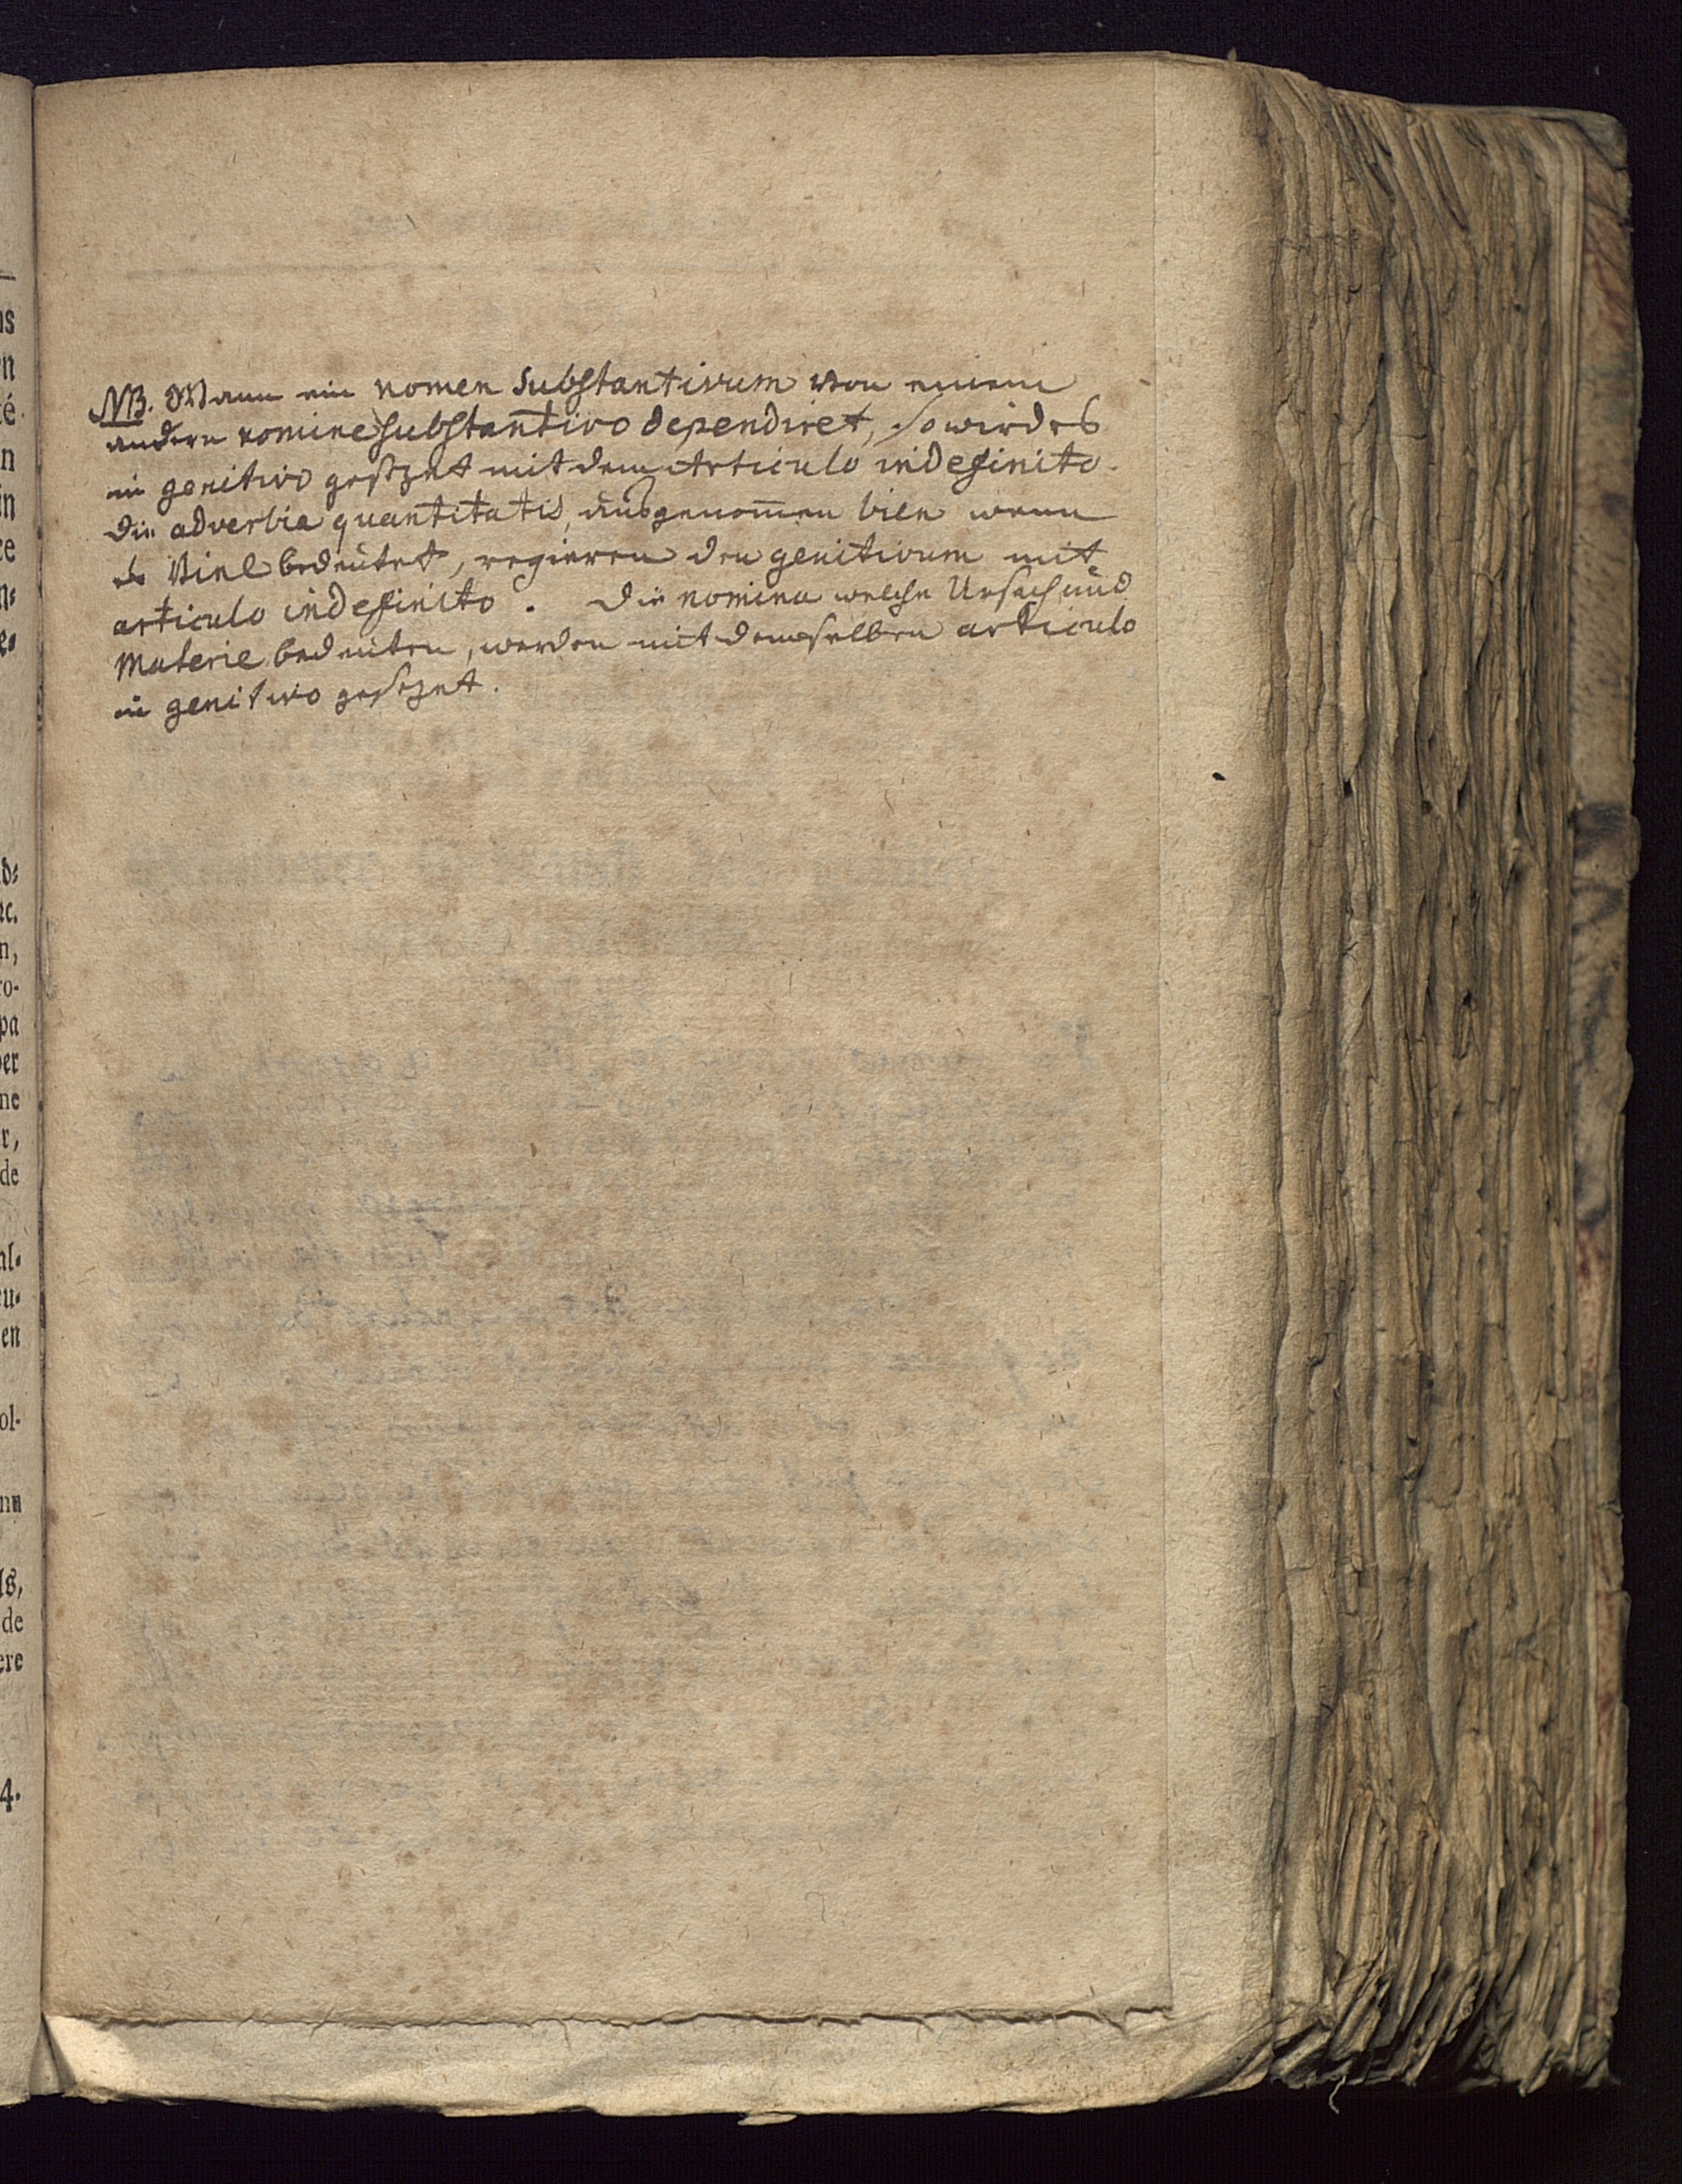 NB. Wann ein nomen substantivum von einem
andern nomine substantivo dependiret, so wird es
in genitivo gesezet mit dem Articulo indefinito.
Die adverbia quantitatis, ausgenom̅en bien wenn
es Viel bedeutet, regieren den genitivum mit
articulo indefinito. Die nomina welche Ursach und
Materie bedeuten, werden mit demselben articulo
in genitivo gesezet.